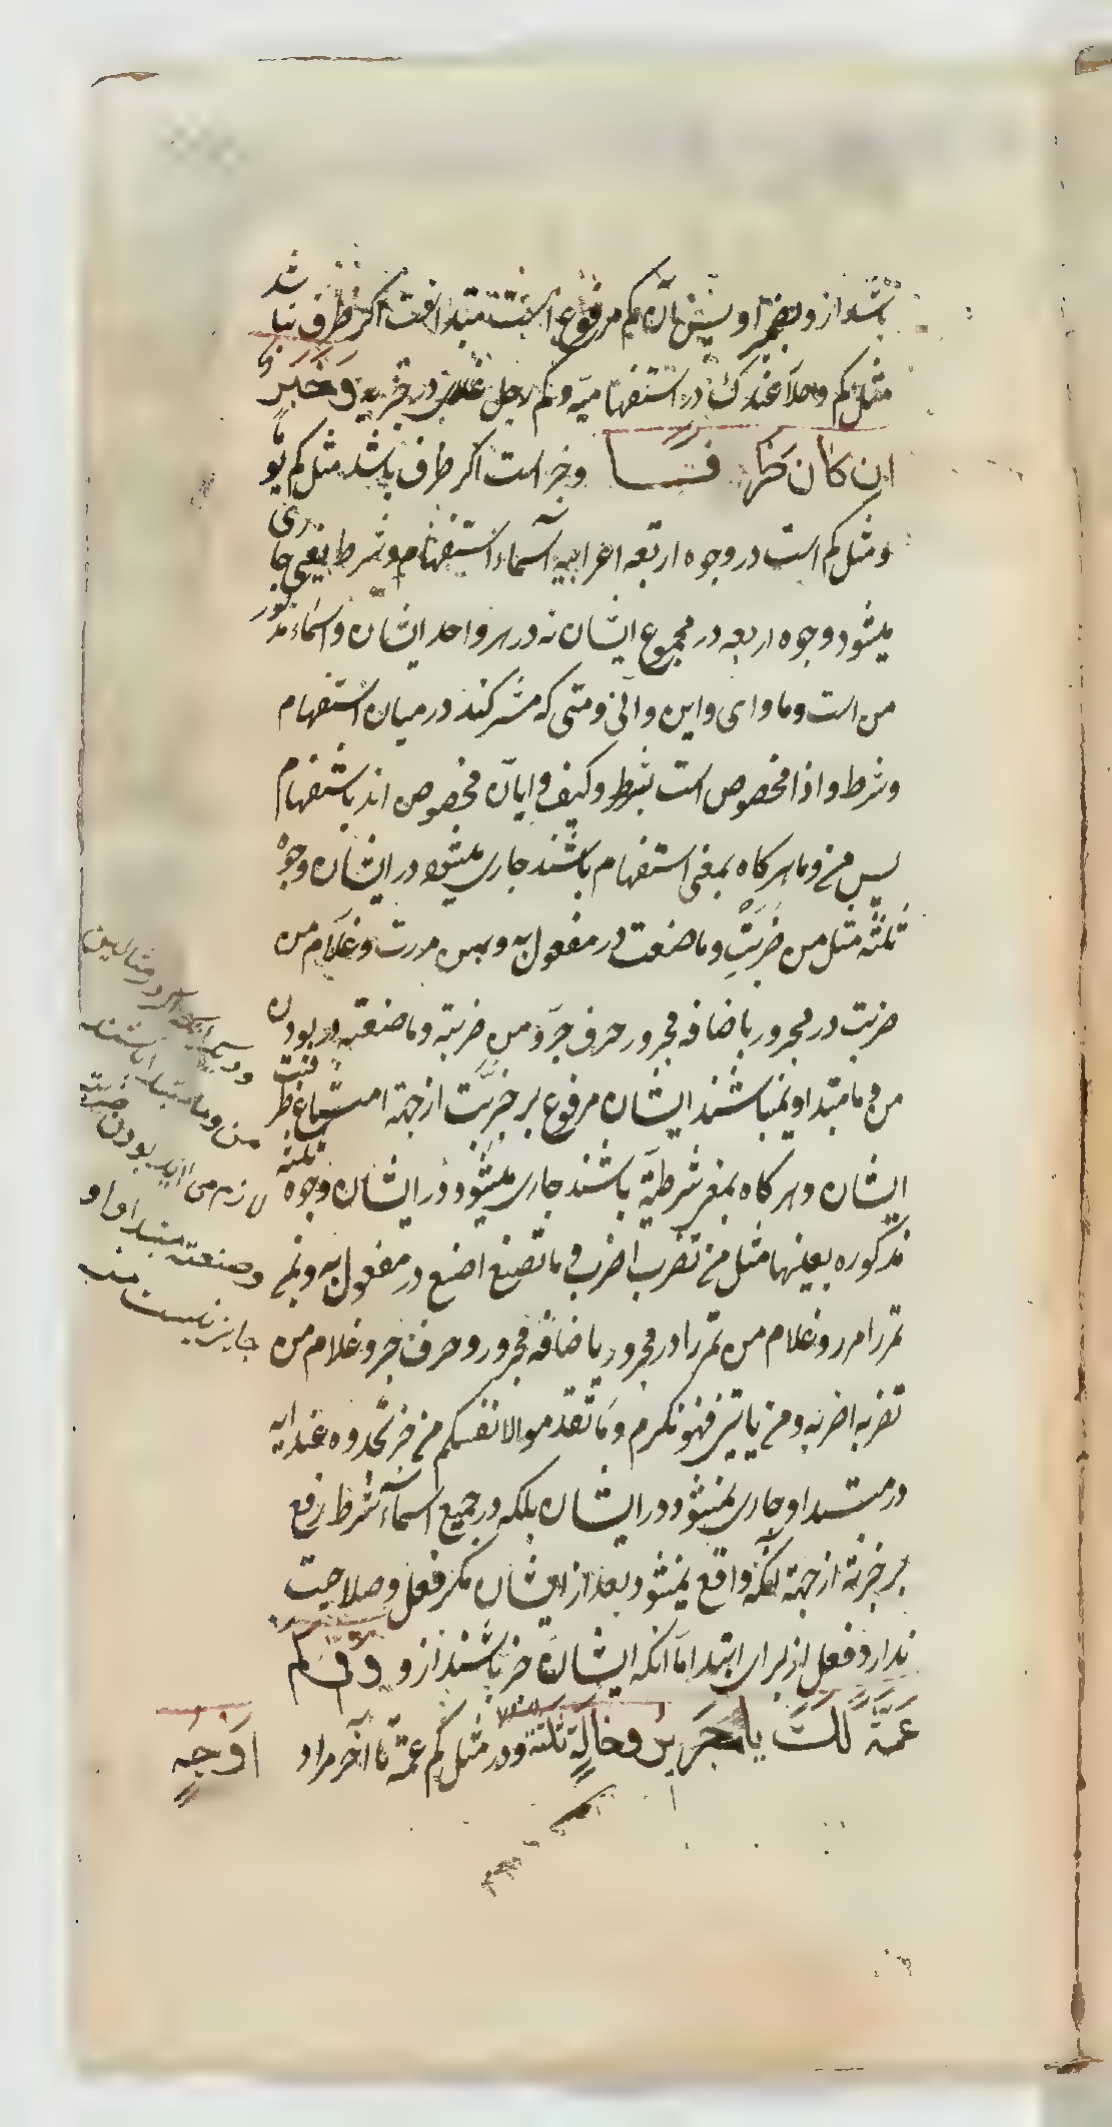 باشد از و بضمیر او پس آن کم مرفوع است مبتدا است اگر ظرف نباشد
مثل کم رجلا عندک در استفهامیه و کم رجل غلامی در خبریه وَخَبَرٌ
ان کان ظرفا و خبر است اگر ظرف باشد مثل کم یو
و مثل کم است در وجوه اربعه اعرابیه اسماء استفهام و شرط یعنی جاری
میشود وجوه اربعه در مجموع ایشان نه در هر واحد ایشان و اسماء مذکور
من است و ما و ای و این و انی و متی که مشترکند در میان استفهام
و شرط و اذا مخصوص است بشرط و کیف و ایان مخصوص اند باستفهام
پس من و ما هر کاه بمعنی استفهام باشند جاری میشود در ایشان وجوه
ثلثه مثل من ضربت و ما صنعت در مفعول به و بمن مررت و غلام من
ضربت در مجرور باضافه مجرور حرف جر و من ضربته و ما صنعته در بودن
من و ما مبتدا و نمیباشند ایشان مرفوع بر خبریت از جهة امتناع ظرفیت
ایشان و هر کاه بمعنی شرطیة باشند جاری میشود در ایشان وجوه ثلثه
مذکوره بعینها مثل من تضرب اضرب و ما تصنع اصنع در مفعول به و بمن
تمرر امرر و غلام من تمرر در مجرور باضافه مجرور و حرف جر و غلام من
تضربه اضربه و من یاتینی فهو مکرم و ما تقدموا لانفسکم من خیر تجدوه عند الله
در مبتدا و جاری نمیشود در ایشان بلکه در جمیع اسماء شرط رفع
بر خبریة از جهة آنکه واقع نمیشود بعد از ایشان مکر فعل و صلاحیت
ندارد فعل از برای ابتدا ما آنکه ایشان خبر باشند از و وَفی کَم
عَمَّةٌ لَکَ یا جَریرُ وَ خالَةٌ ثلثة و در مثل کم عمة تا آخر مراد اَوْجُهٍ
در مثالین
من و ما مبتدا باشند
لازم می آید بودن ضربته
و صنعته مبتدا و او
جایز نیست